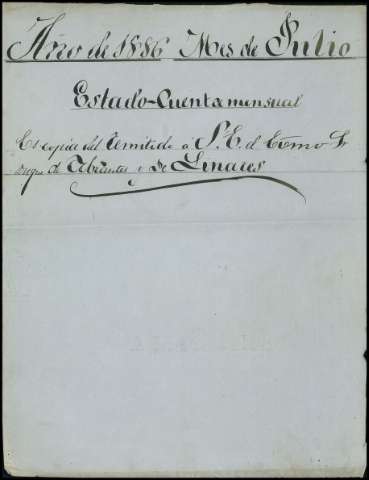 Año de 1886 Mes de Julio
Estado-Cuenta mensual
Es copia del remitido a S. E. el Excmo Sr
Duque de Abrantes y de Linares